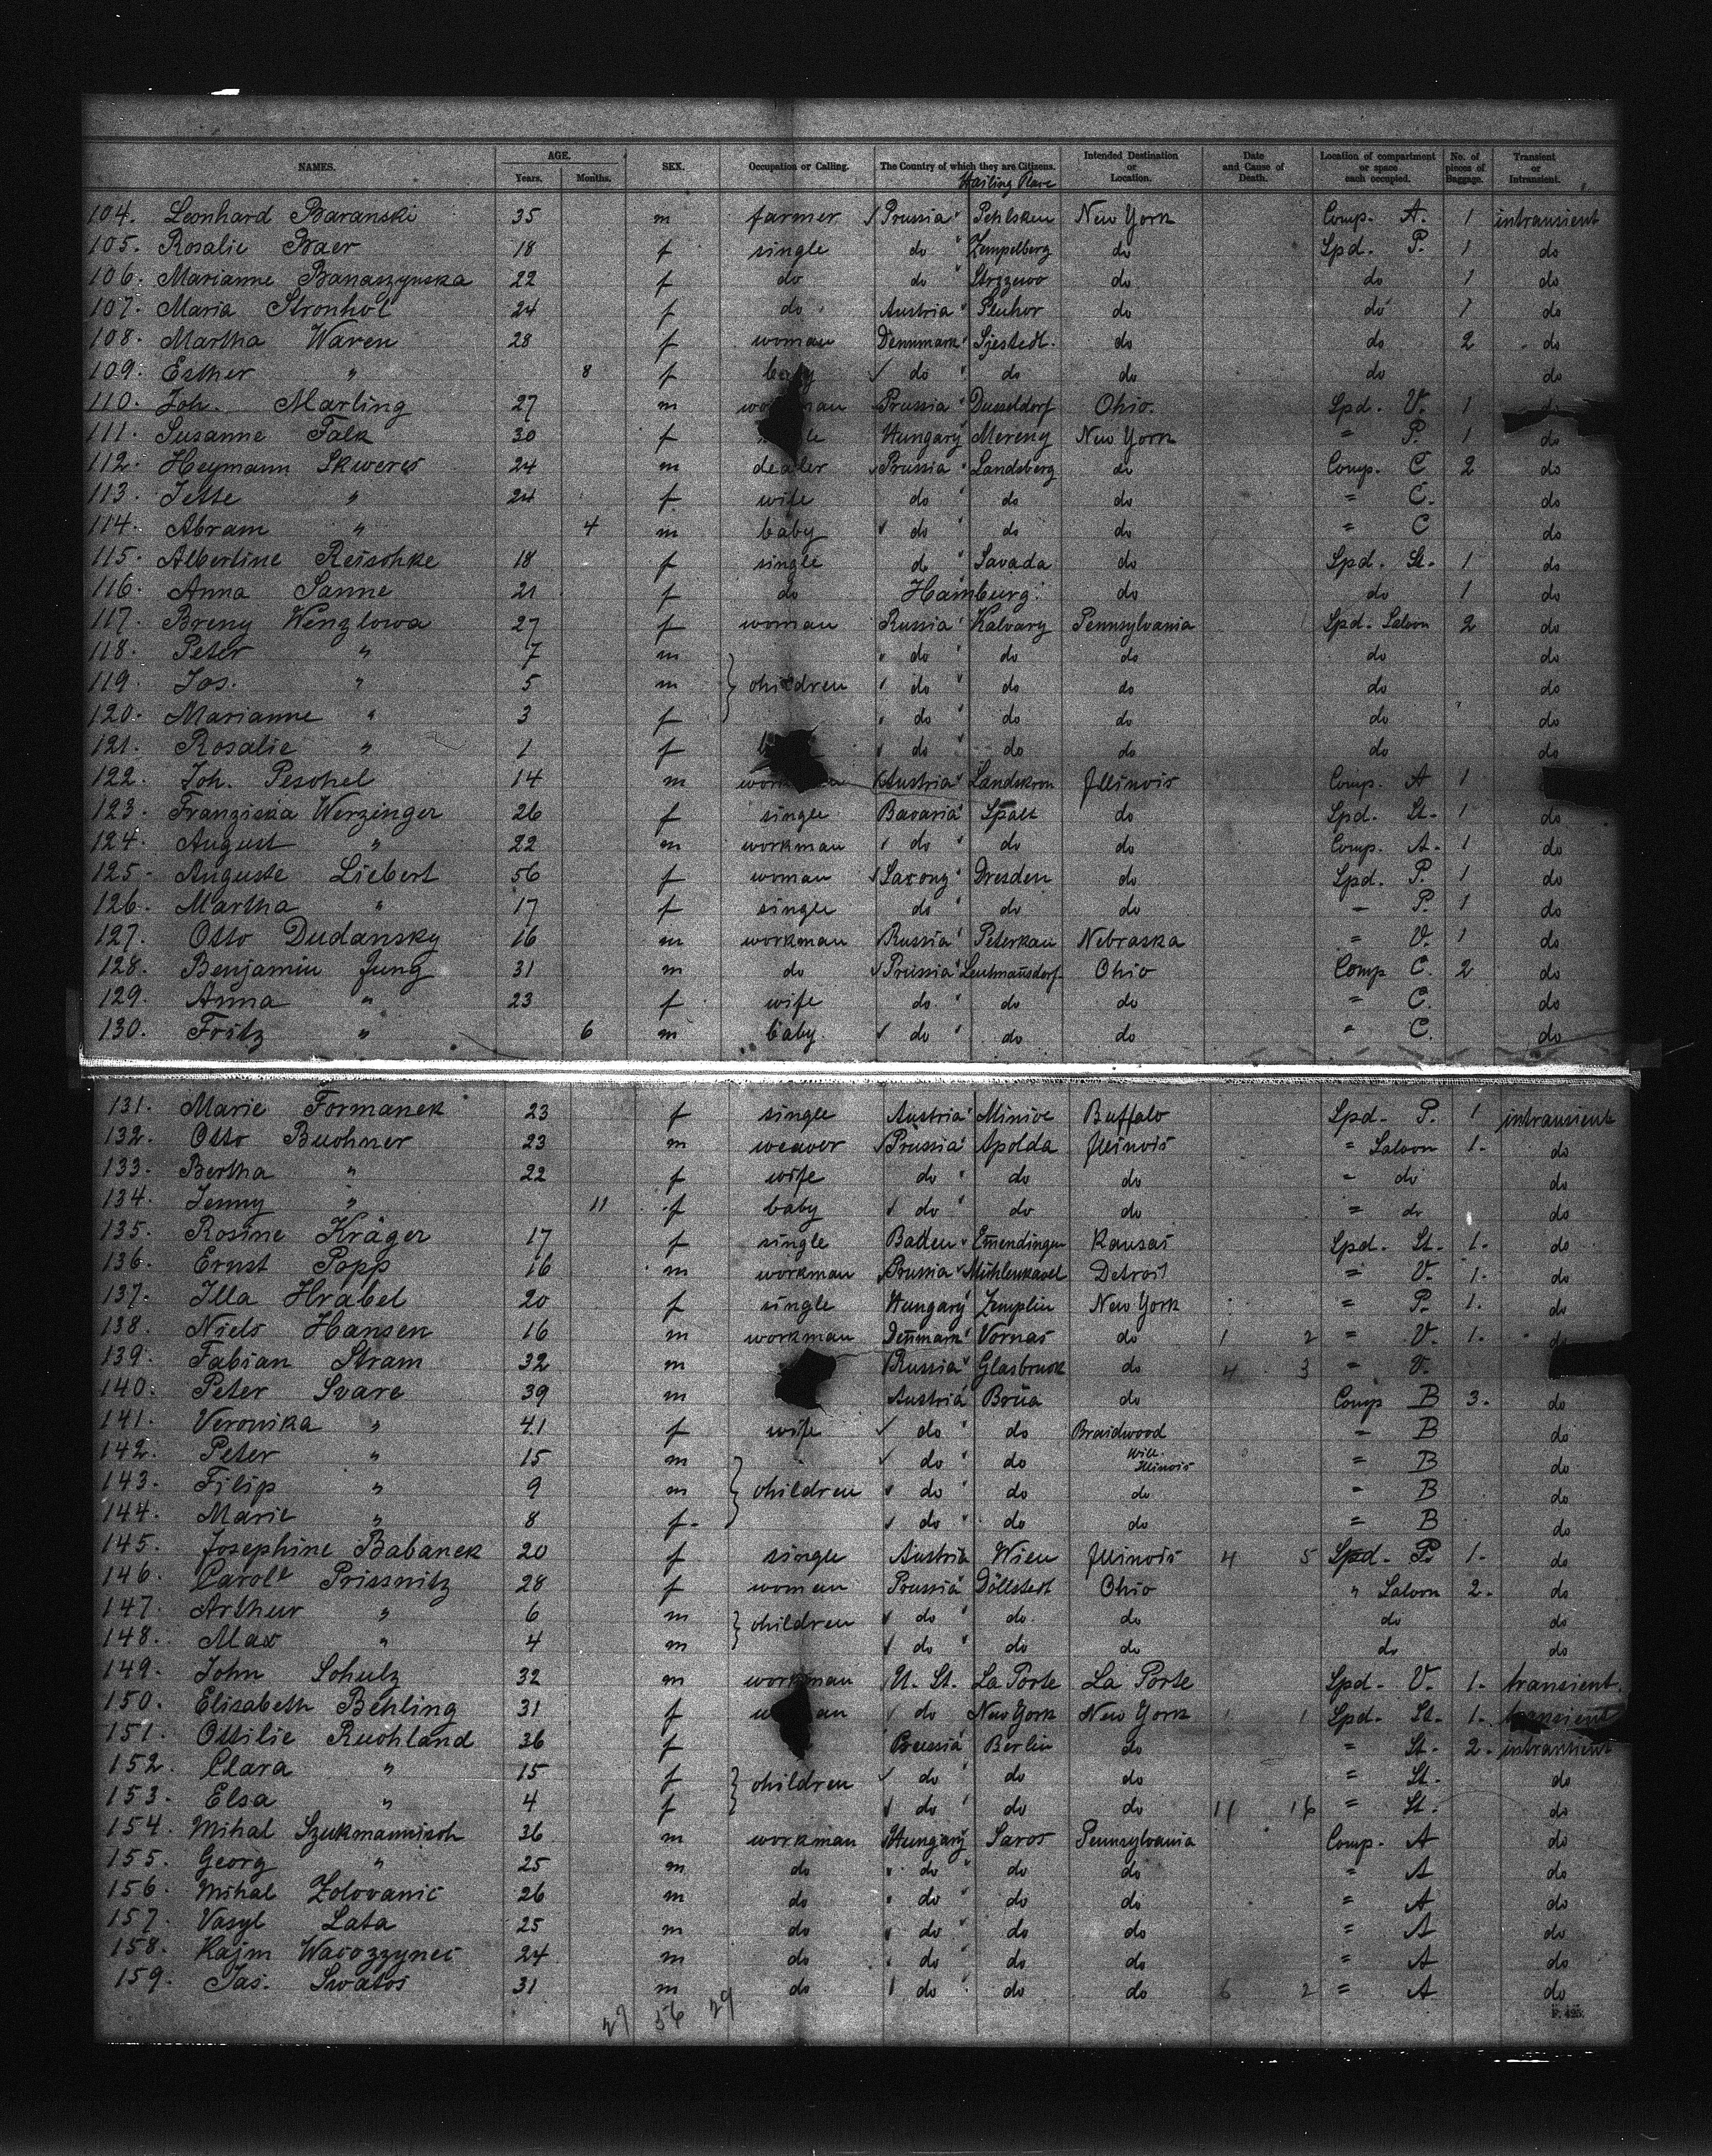 NAMES. AGE. Years. Months. SEX. Occupation or Calling. The Country of which they are Citizens. Intended Destination or Location. Date and Cause of Death. Location of compartment or space each occupied. No. of pieces of Baggage. Transient or Intransient.
Hailing Place
104. Leonhard Baranski 35 m farmer Prussia Pehlsken New York Comp. A. 1 intransient
105. Rosalie Baer 18 f single do Zempelberg do Spd. P. 1 do
106. Marianne Banaszynska 22 f do do Strzzewo do do 1 do
107. Maria Stronhol 24 f do Austria Pluhor do do 1 do
108. Martha Waren 28 f woman Dennmark Sjestedt. do do 2 do
109. Esther " 8 f baby do do do do do
110. Joh. Marling 27 m workman Prussia Dusseldorf Ohio. Spd. V. 1
111. Susanne Falk 30 f Hungary Mereny New York " P. 1 do
112. Heymann Skweres 24 m dealer Prussia Landsberg do Comp. C 2 do
113. Jette " 24 f wife do do do " C. do
114. Abram " 4 m baby do do do " C do
115. Albertine Reischke 18 f single do Savada do Spd. St. 1 do
116. Anna Sanne 21 f do Hamburg. do do 1 do
117. Breny Wenzlowa 27 f woman Russia Kalvary Pennsylvania Spd. Saloon 2 do
118. Peter " 7 m do do do do do
119. Jos. " 5 m children do do do do do
120. Marianne " 3 f do do do do do
121. Rosalie " 1 f do do do do do
122. Joh. Peschel 14 m Austria Landskron Illinois Comp. A 1
123. Franziska Werzinger 26 f single Bavaria Spalt do Spd. St. 1 do
124. August " 22 m workman do do do Comp. A. 1 do
125. Auguste Liebert 56 f woman Saxony Dresden do Spd. P. 1 do
126. Martha " 17 f single do do do " P. 1 do
127. Otto Dudansky 16 m workman Russia Peterkau Nebraska " V. 1 do
128. Benjamin Jung 31 m do Prussia Leutmansdorf Ohio Comp C. 2 do
129. Anna " 23 f wife do do do " C. do
130. Fritz " 6 m baby do do do " C. do
131. Marie Formanek 23 f single Austria Minive Buffalo Spd. P. 1 intransient
132. Otto Buchner 23 m weaver Prussia Apolda Illinois " Saloon 1. do
133. Bertha " 22 f wife do do do " do do
134. Jenny " 11 f baby do do do " do do
135. Rosine Kräger 17 f single Baden Emendingen Kansas Spd. St. 1. do
136. Ernst Popp 16 m workman Prussia Mühlenkavel Detroit " V. 1. do
137. Illa Hrabel 20 f single Hungary Zemplin New York " P. 1. do
138. Niels Hansen 16 m workman Denmark Vornas do 1 2 " V. 1. do
139. Fabian Stram 32 m Russia Glasbruck do 4 3 " V.
140. Peter Svare 39 m Austria Brüa do Comp B 3. do
141. Veronika " 41 f wife do do Braidwood " B do
142. Peter " 15 m do do Will. Illinois " B do
143. Filip " 9 m children do do do " B do
144. Marie " 8 f. do do do " B do
145. Josephine Babanek 20 f single Austria Wien Illinois 4 5 Spd. P. 1. do
146. Carole Prissnitz 28 f woman Prussia Döllstedt Ohio " Saloon 2. do
147. Arthur " 6 m children do do do do do
148. Max " 4 m do do do do do
149. John Schulz 32 m workman U. St. La Porte La Porte Spd. V. 1. transient.
150. Elisabeth Behling 31 f do New York New York 1 1 Spd. St. 1. transient
151. Ottilie Ruchland 36 f Prussia Berlin do " St. 2. intransient
152. Clara " 15 f children do do do " St. do
153. Elsa " 4 f do do do 11 16 " St. do
154. Mihal Szukmannisch 36 m workman Hungary Saros Pennsylvania Comp. A do
155. Georg " 25 m do do do do " A do
156. Mihal Zolovanic 26 m do do do do " A do
157. Vasyl Lata 25 m do do do do " A do
158. Hajm Wacozzynec 24 m do do do do " A do
159. Jas. Swatos 31 m do do do do 6 2 " A do
27 56 29